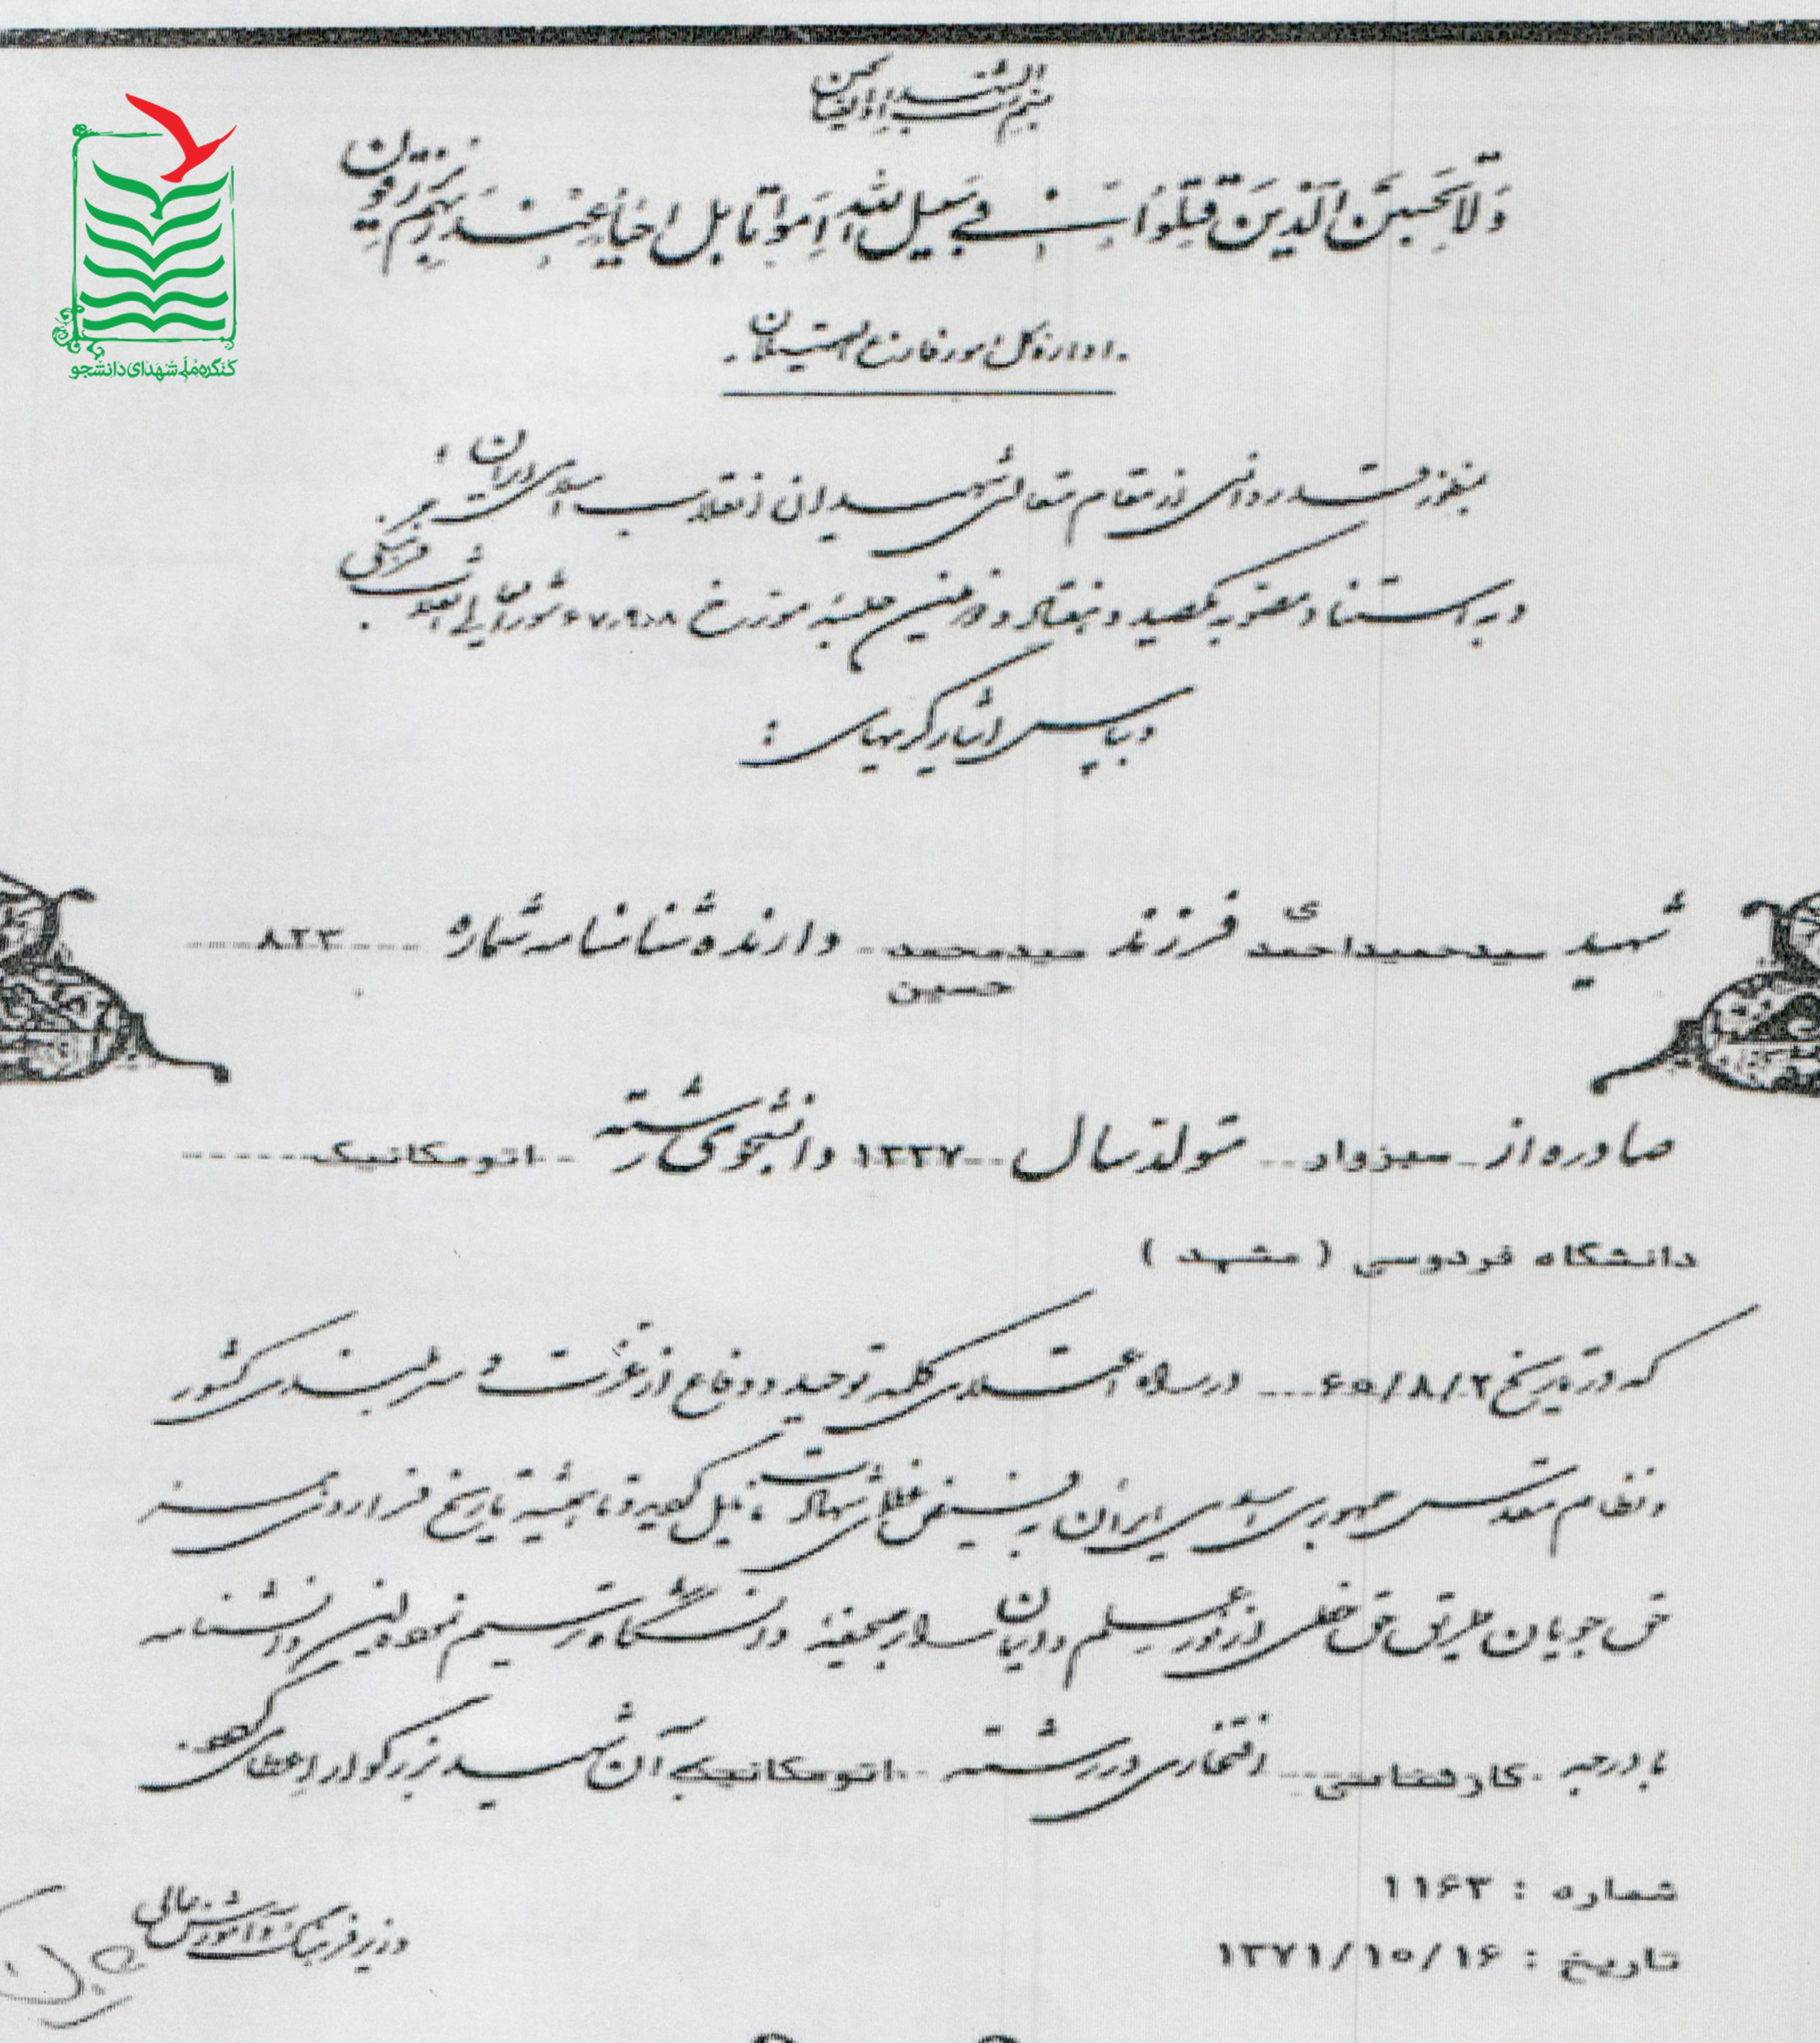 بسم رب الشهداء و الصدیقین
وَلا تَحْسَبَنَّ الَّذینَ قُتِلُوا فِی سَبیلِ اللهِ اَمواتا بَل اَحیاءٌ عِندَ رَبِّهِم یُرزَقُونَ
کنگره ملی شهدای دانشجو
اداره کل امور فارغ التحصیلان
بمنظور قدردانی از مقام متعالی شهیدان انقلاب اسلامی ایران
و به استناد مصوبه یکصید و هفتاد و دومین جلسه مورخ ۶۷٫۹٫۰۸ شورای عالی انقلاب فرهنگی
و بپاس ایثارگریهای :
شهید سیدحمید احمدی فرزند سیدمحمد حسین دارنده شناسنامه شماره ۸۲۳
صادره از سبزوار متولد سال ۱۳۳۷ دانشجوی رشته اتومکانیک
دانشگاه فردوسی ( مشهد )
که در تاریخ ۶۵/۸/۲ در راه اعتلای کلمه توحید و دفاع از عزت و سربلندی کشور
و نظام مقدس جمهوری اسلامی ایران به فیض عظمای شهادت نایل گردید و تا همیشه تاریخ فراروی
حق جویان طریق حق خطی از نور علم و ایمان بر صحیفه دانشگاه ترسیم نمود این دانشنامه
با درجه کارشناسی افتخاری در رشته اتومکانیک به آن شهید بزرگوار اعطا می گردد.
شماره : ۱۱۶۳
تاریخ : ۱۳۷۱/۱۰/۱۶
وزیر فرهنگ و آموزش عالی